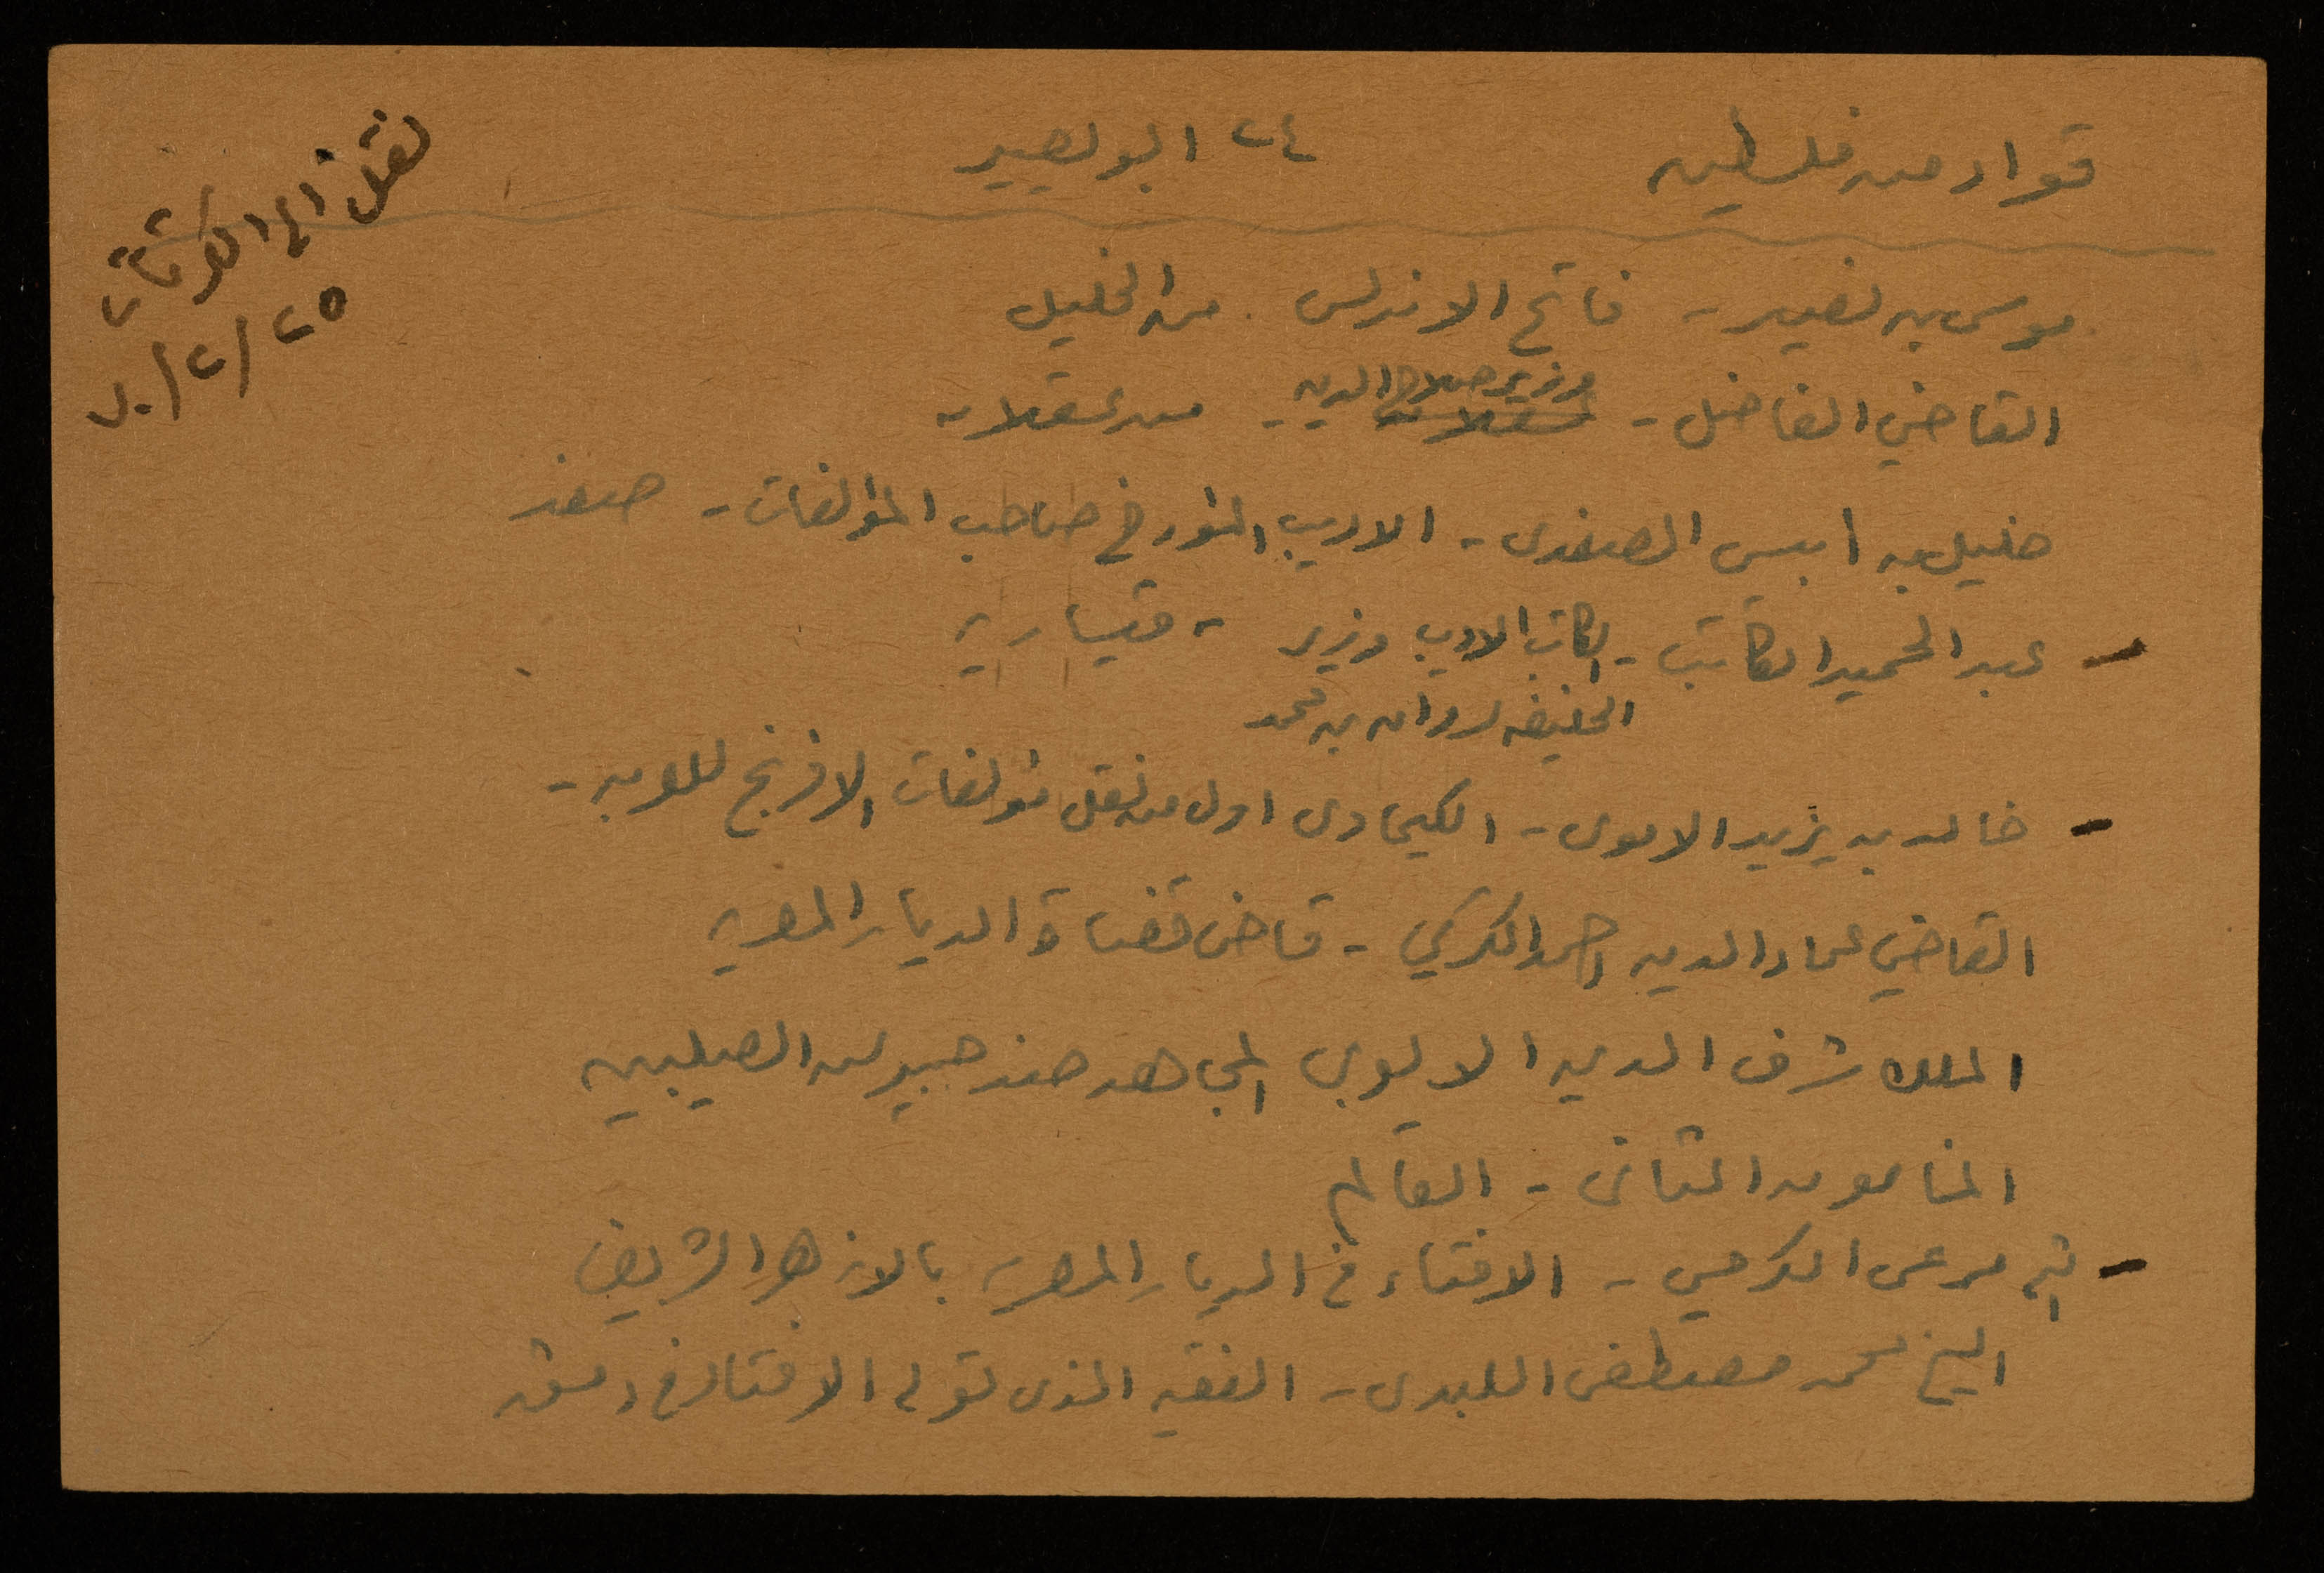 قواد من فلسطين
٢٤ ابو لصير
نقل الى الكرتات
٢٥/٢/٧٠
موسى بن نصير - فاتح الاندلس . من الخليل
القاضي الفاضل - وزير صلاح الدين - من عسقلان
خليل بن ايبس الصفدى - الاديب المؤرخ صاحب المؤلفات - صفد
- عبد الحميد الكاتب - الكاتب الاديب وزير - قيساريه
الخليفه مروان بن محمد
- خالد بن يزيد الاموى - الكيماوى اول من نقل مؤلفات الافرنج للعربيه -
القاضي عماد الدين احمد الكركي - قاضى قضاة الديار المصريه
الملك شرف الدين الايوبي المجاهد ضد جيوش الصليبين
المأمون الثانى - العالم
- الشيخ مرعى الكرمي - الافتاء في الديار المصريه بالازهر الشريف
الشيخ محمد مصطفى اللبدى - الفقيه الذى تولى الافتاء في دمشق